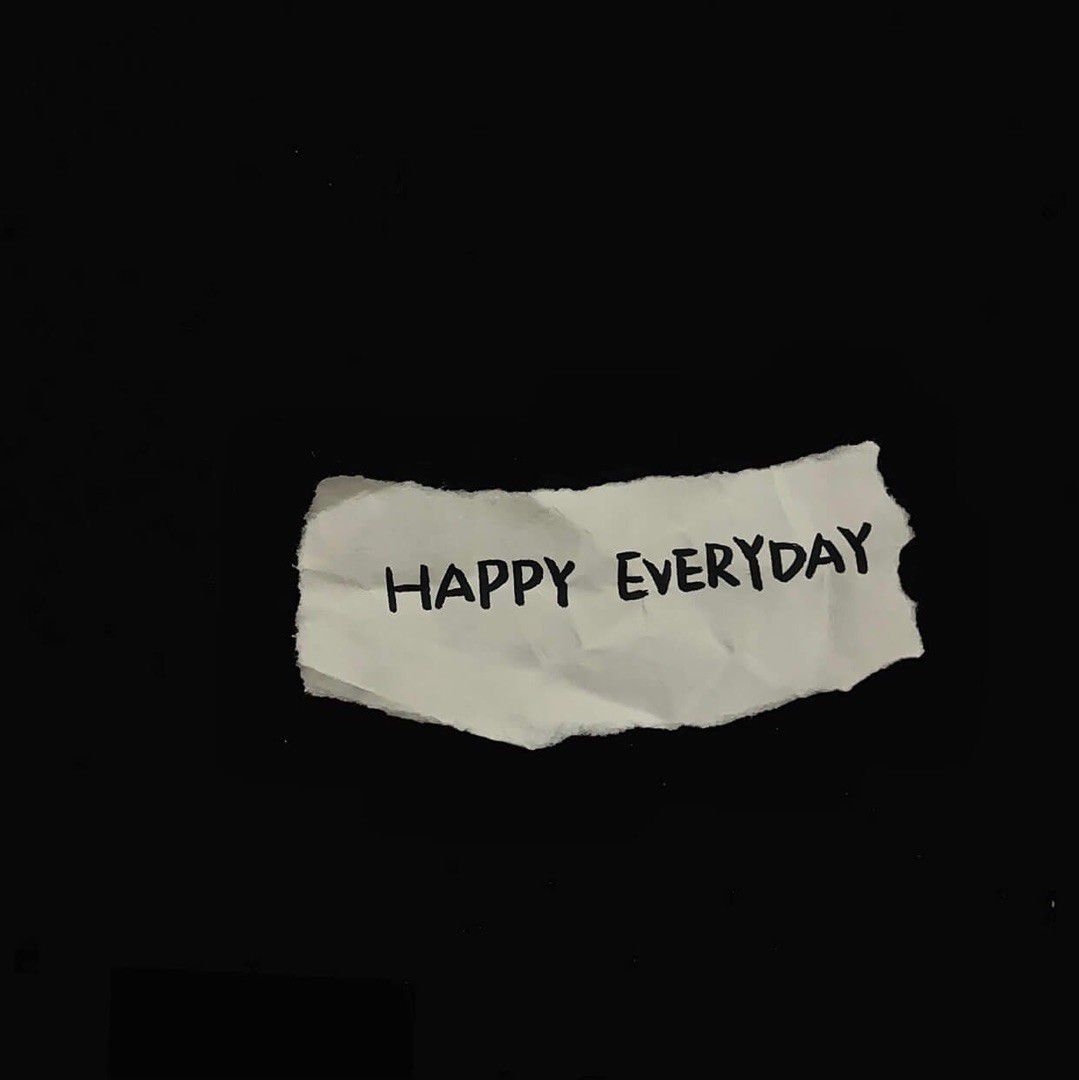 HAPPY EVERYDAY